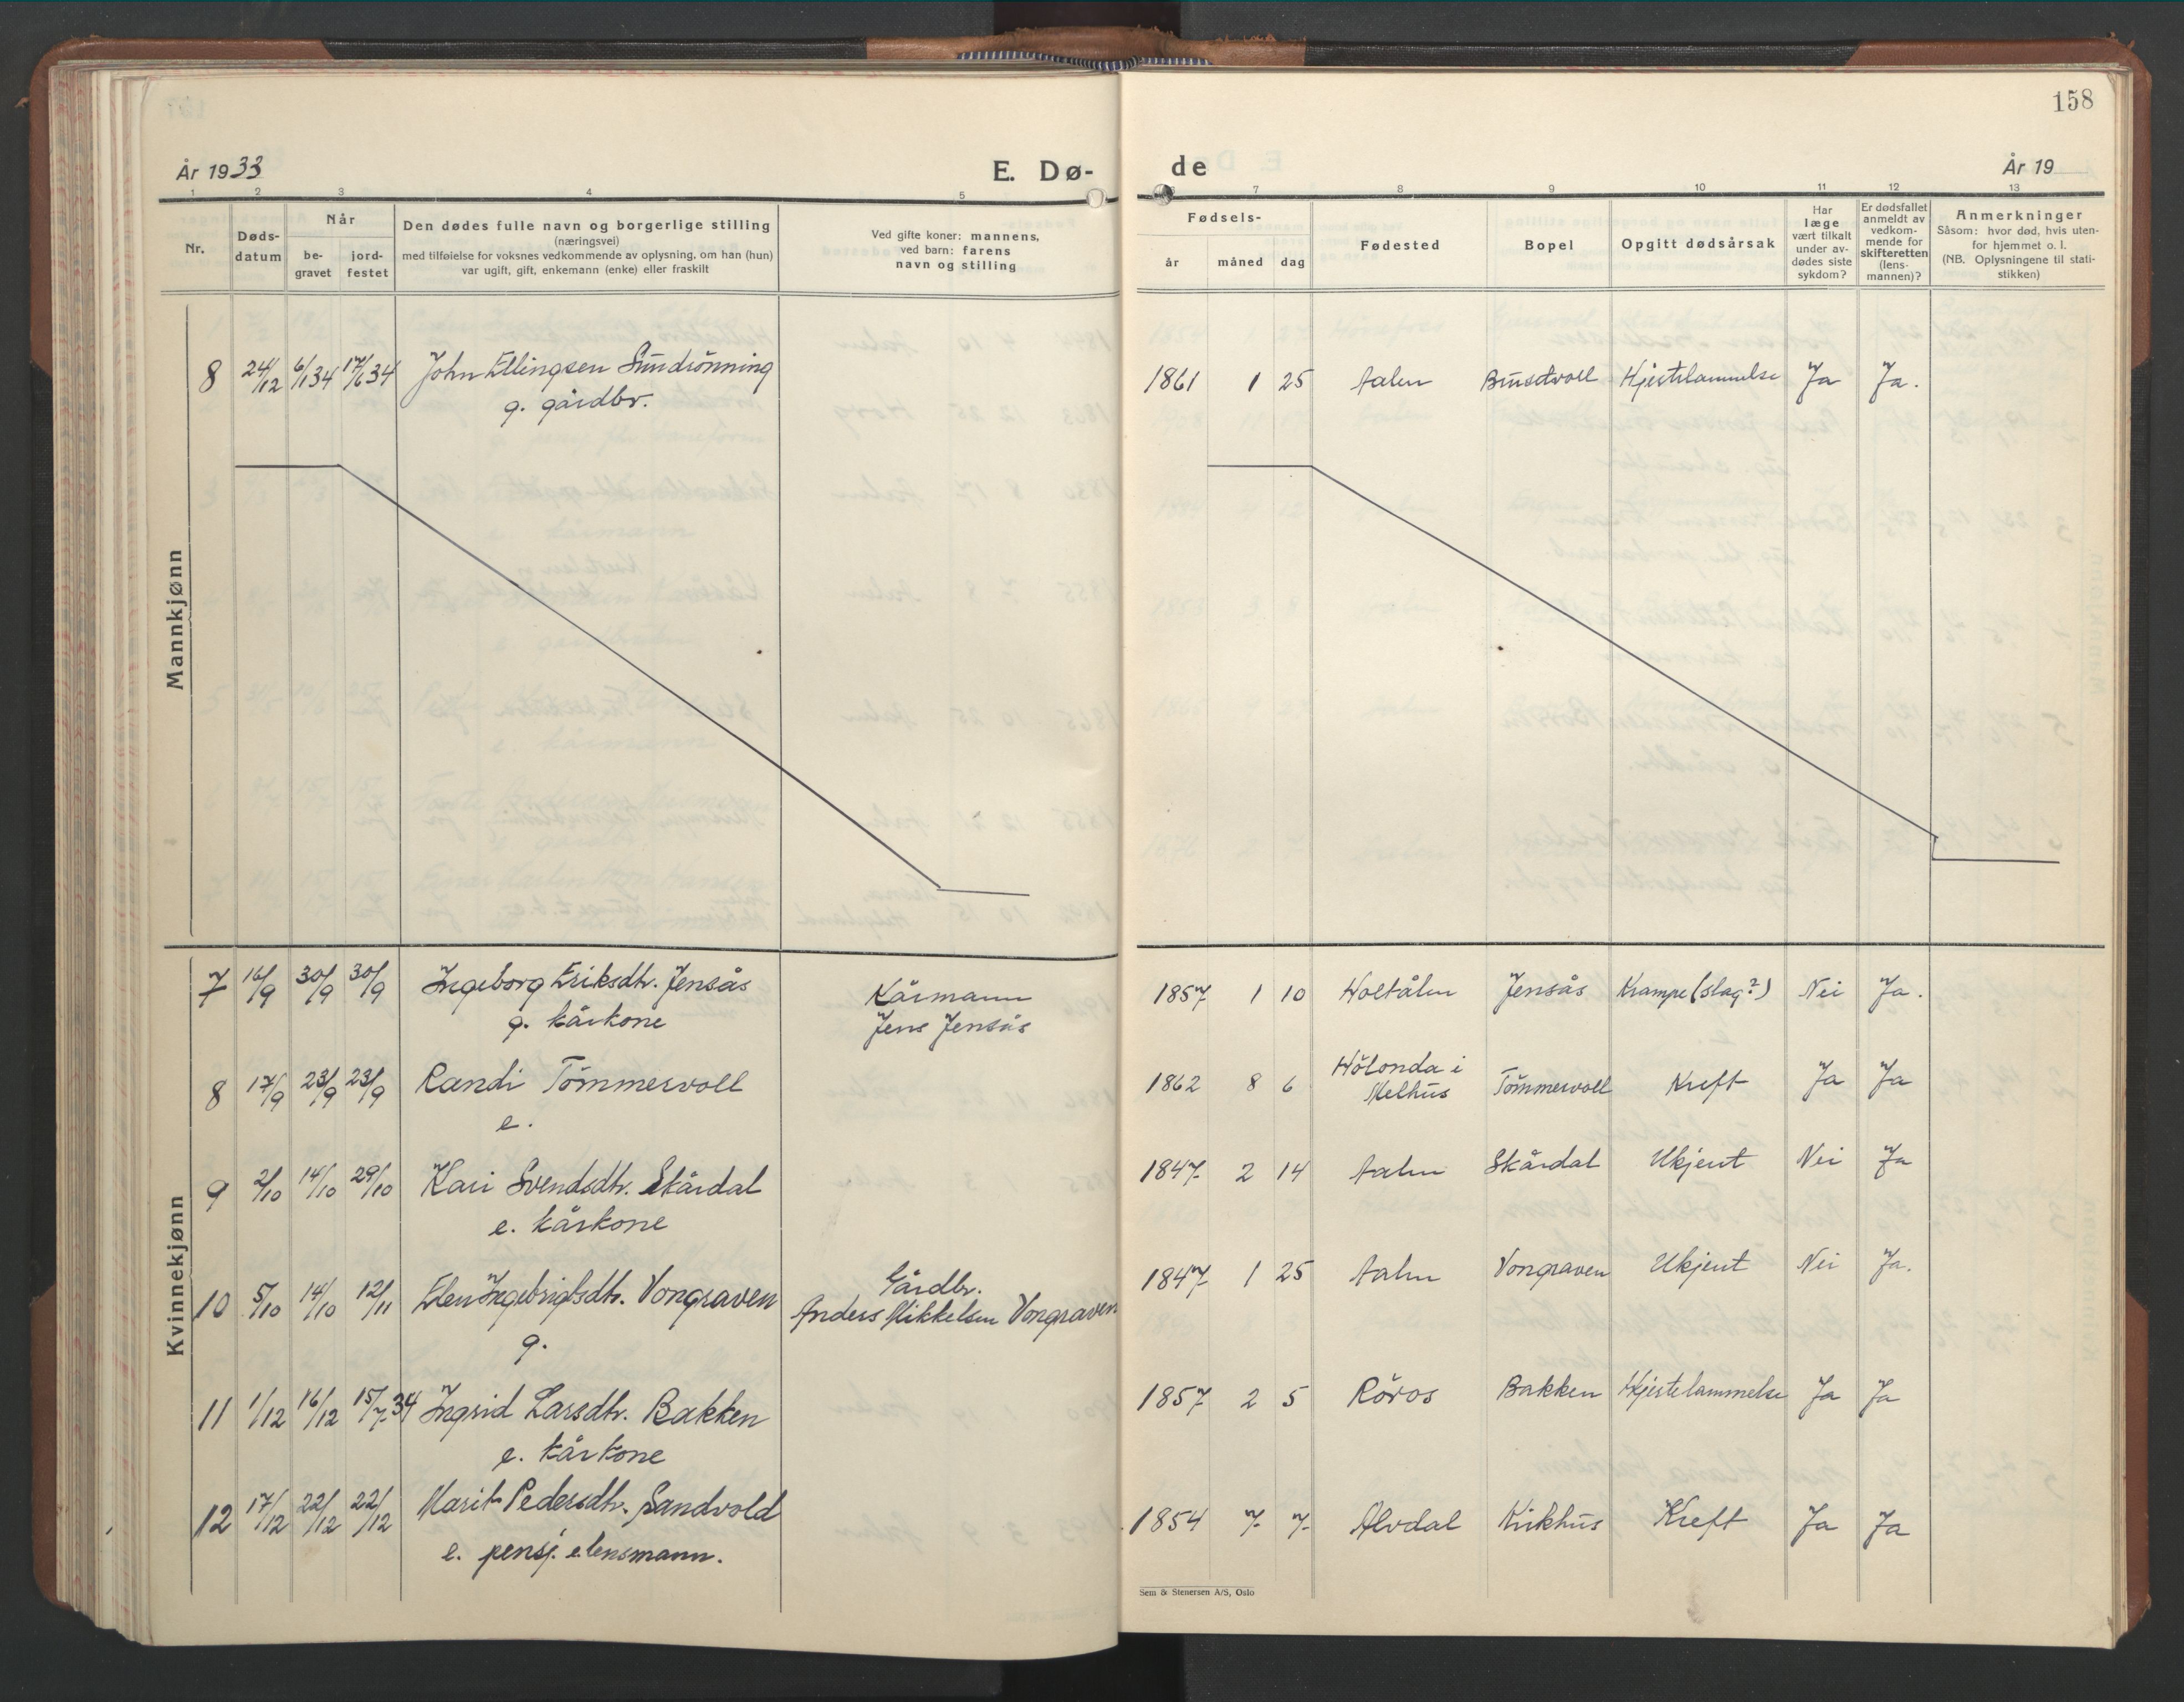 158
År 1933
E. Dø-
de
År 19
1 2 3 4 5 7 8 9 10 11 12 13
Nr.
Døds-
datum
Når
be-
gravet
jord-
festet
Den dødes fulle navn og borgerlige stilling
(næringsvei)
med tilføielse for voksnes vedkommende av oplysning, om han (hun)
var ugift, gift, enkemann (enke) eller fraskilt
Ved gifte koner: mannens,
ved barn: farens
navn og stilling
Fødsels-
år måned dag
Fødested
Bopel
Opgitt dødsårsak
Har
læge
vært tilkalt
under av-
dødes siste
sykdom?
Er dødsfallet
anmeldt av
vedkom-
mende for
skifteretten
(lens-
mannen)?
Anmerkninger
Såsom: hvor død, hvis uten-
for hjemmet o. l.
(NB. Oplysningene til stati-
stikken)
Mannkjønn
8 24/12 6/1 34 17/6 34 John Ellingsen Sundrönning 1861 1 25 Aalen Busetvoll Hjertelammelse Ja Ja.
g. gårdbr.
Kvinnekjønn
7 16/9 30/9 30/9 Ingeborg Eriksdtr. Jensås Kårmann 1857 1 10 Holtålen Jensås Krampe (slag?) Nei Ja.
g. kårkone Jens Jensås
8 17/9 23/9 23/9 Randi Tömmervoll 1862 8 6 Hölonda i Melhus Tömmervoll Kreft Ja Ja
e.
9 2/10 14/10 29/10 Kari Svendsdtr. Skårdal 1847 2 14 Aalen Skårdal Ukjent Nei Ja
e. kårkone
10 5/10 14/10 12/11 Elen Ingebrigtsdtr. Vongraven Gårdbr. 1847 1 25 Aalen Vongraven Ukjent Nei Ja.
g. Anders Mikkelsen Vongraven
11 1/12 16/12 15/7 34 Ingrid Larsdtr. Bakken 1857 2 5 Röros Bakken Hjertelammelse Ja Ja
e. kårkone
12 17/12 22/12 22/12 Marit Pedersdtr. Sandvold 1854 7 7 Alvdal Kirkhus Kreft Ja Ja
e. pensj. e. lensmann.
Sem & Stenersen A/S, Oslo